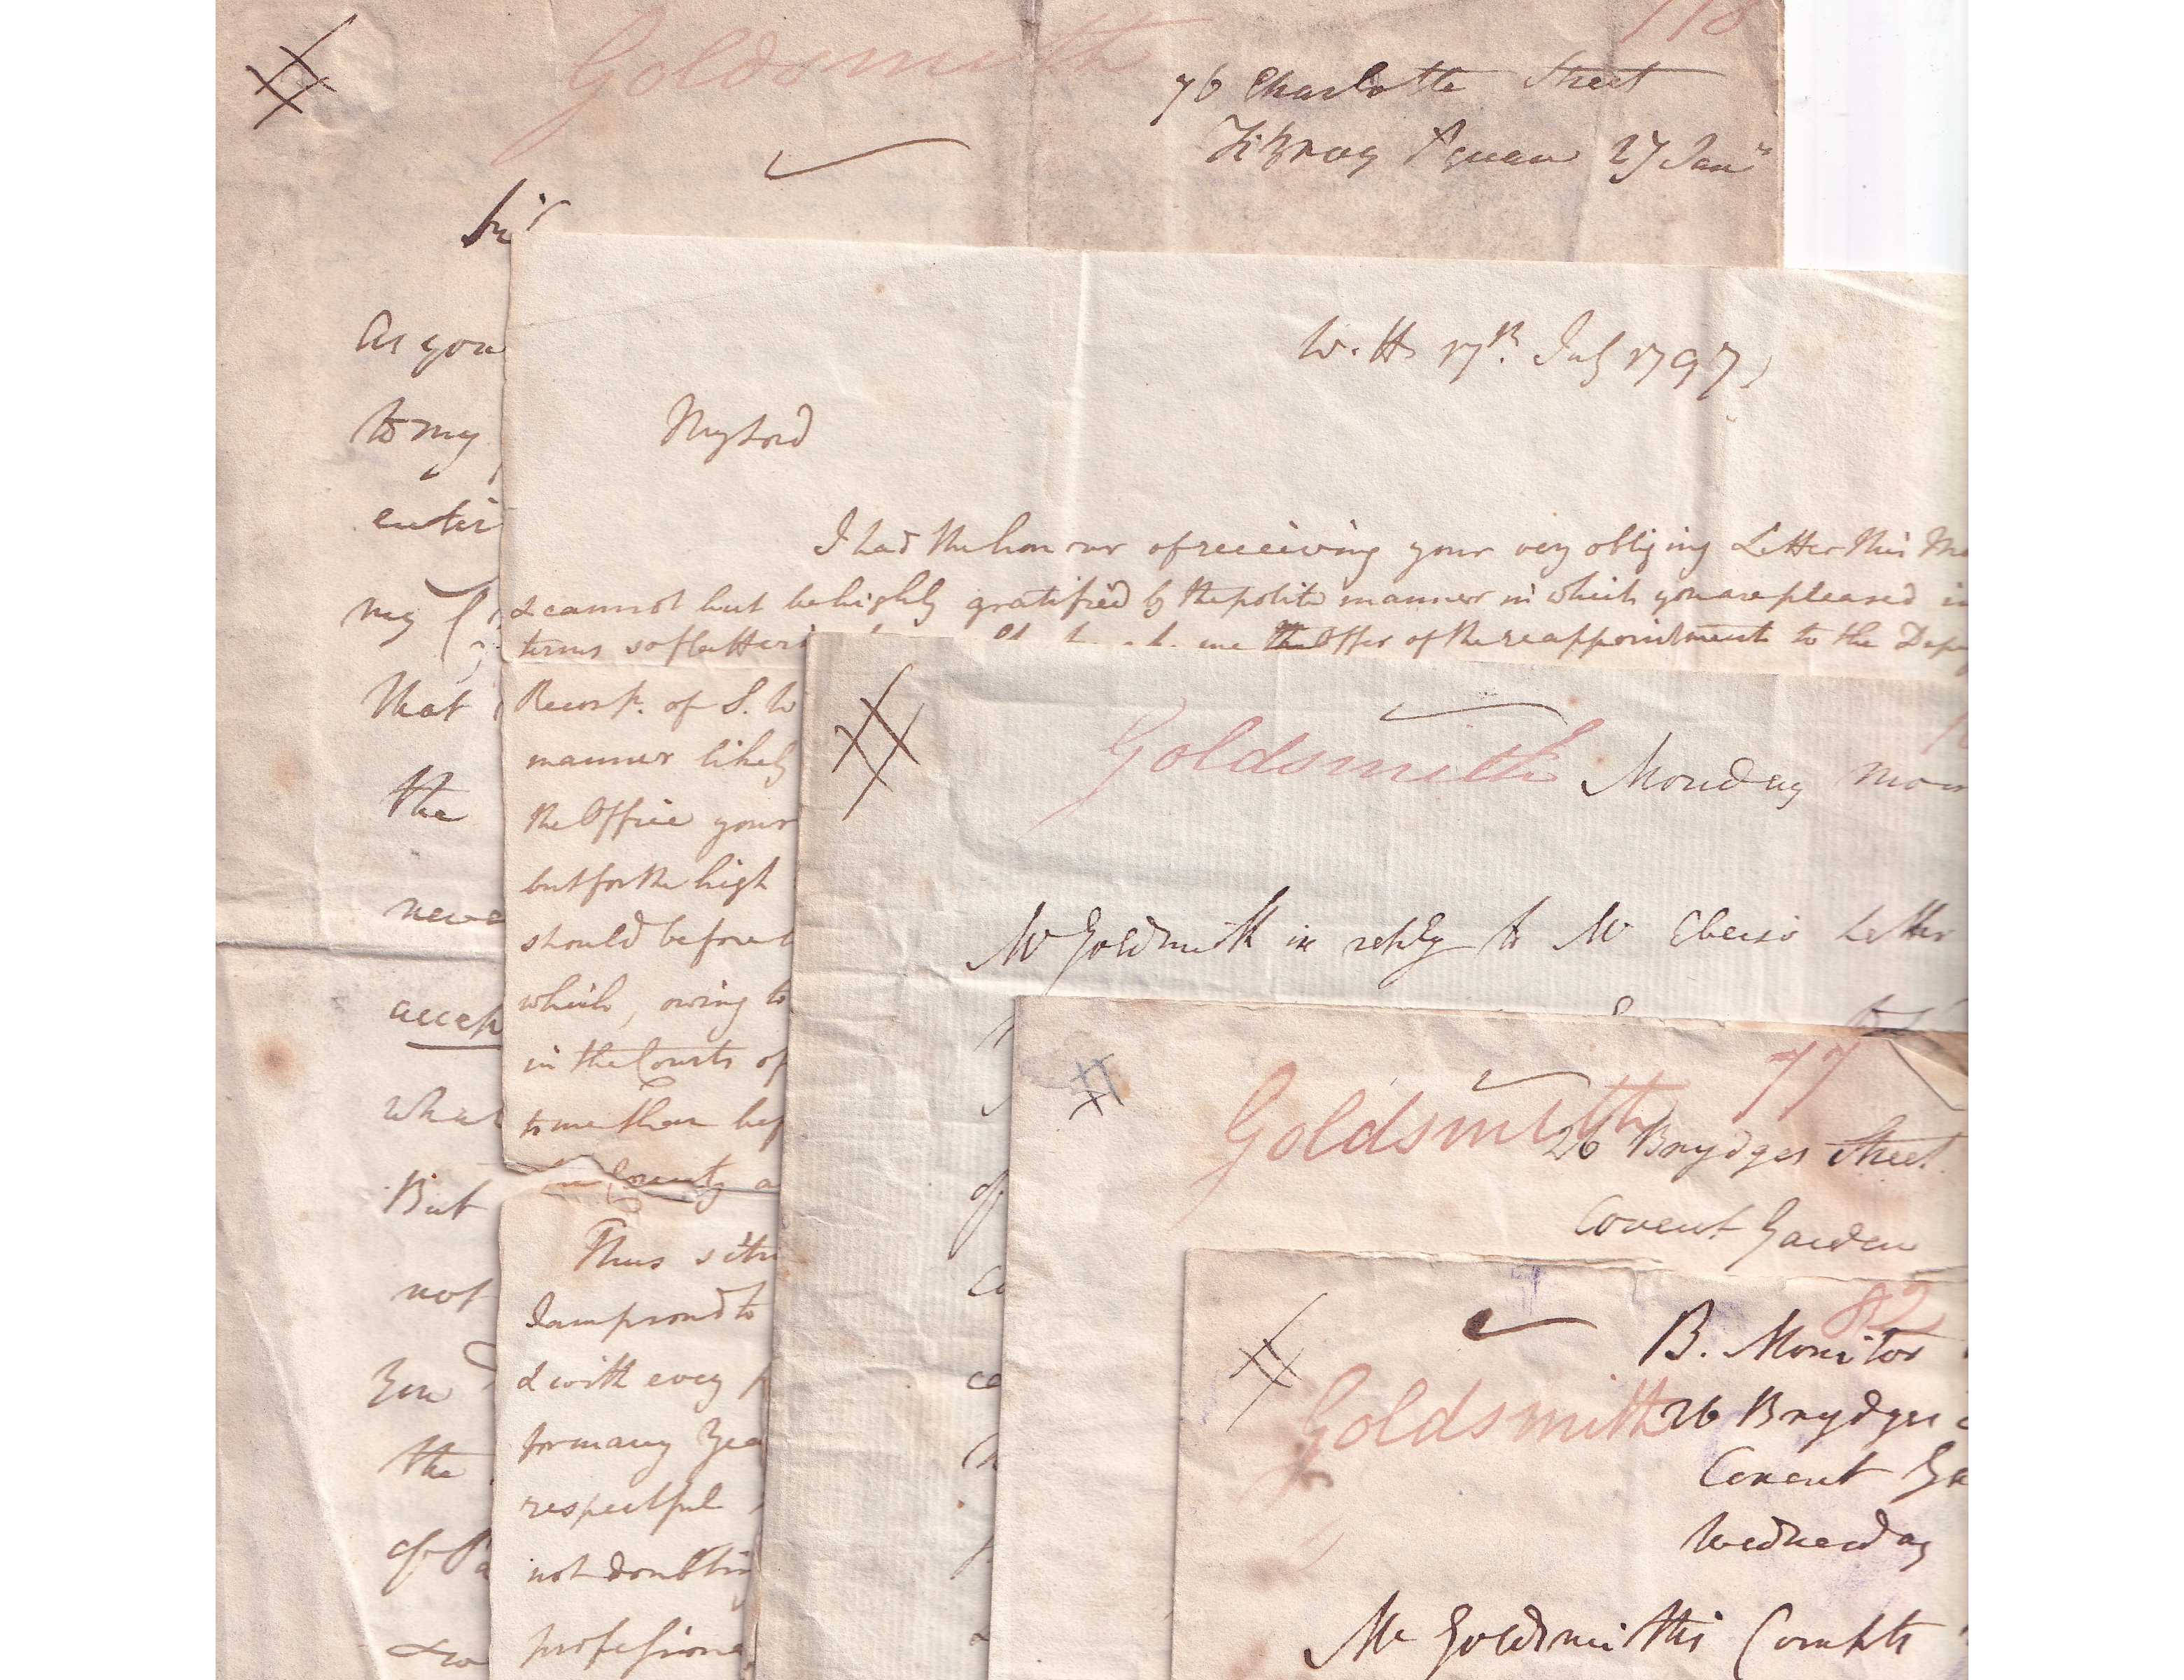 Goldsmith
76 Charlotte Street
Fitzroy Square 27 Jany
Sir
As you
to my
entir
my
That
the
neve
accep
what
But
not
you
the
of Pa
W. H. 17th. July 1797
My Lord
I had the honour of receiving your very obliging Letter this Mo
& cannot but be highly gratified by the polite manner in which you are pleased in
terms so flatteri me the Offer of the reappointment to the Depu
of S. W
manner likely
the Office your
but for the high
should before t
which, owing to
in the Courts of
to me than bef
County a
Thus situ
I am proud to
& with every p
for many Yea
respectful
not doubtin
professiona
Goldsmith
Monday morn
Mr Goldsmith in reply to Mr Ebers's Letter
of
Goldsmith 77
26 Brydges Street
Covent Garden
82
B. Monitor
Goldsmith
26 Brydges
Covent Ga
Wednesday
Mr Goldsmith's Compts